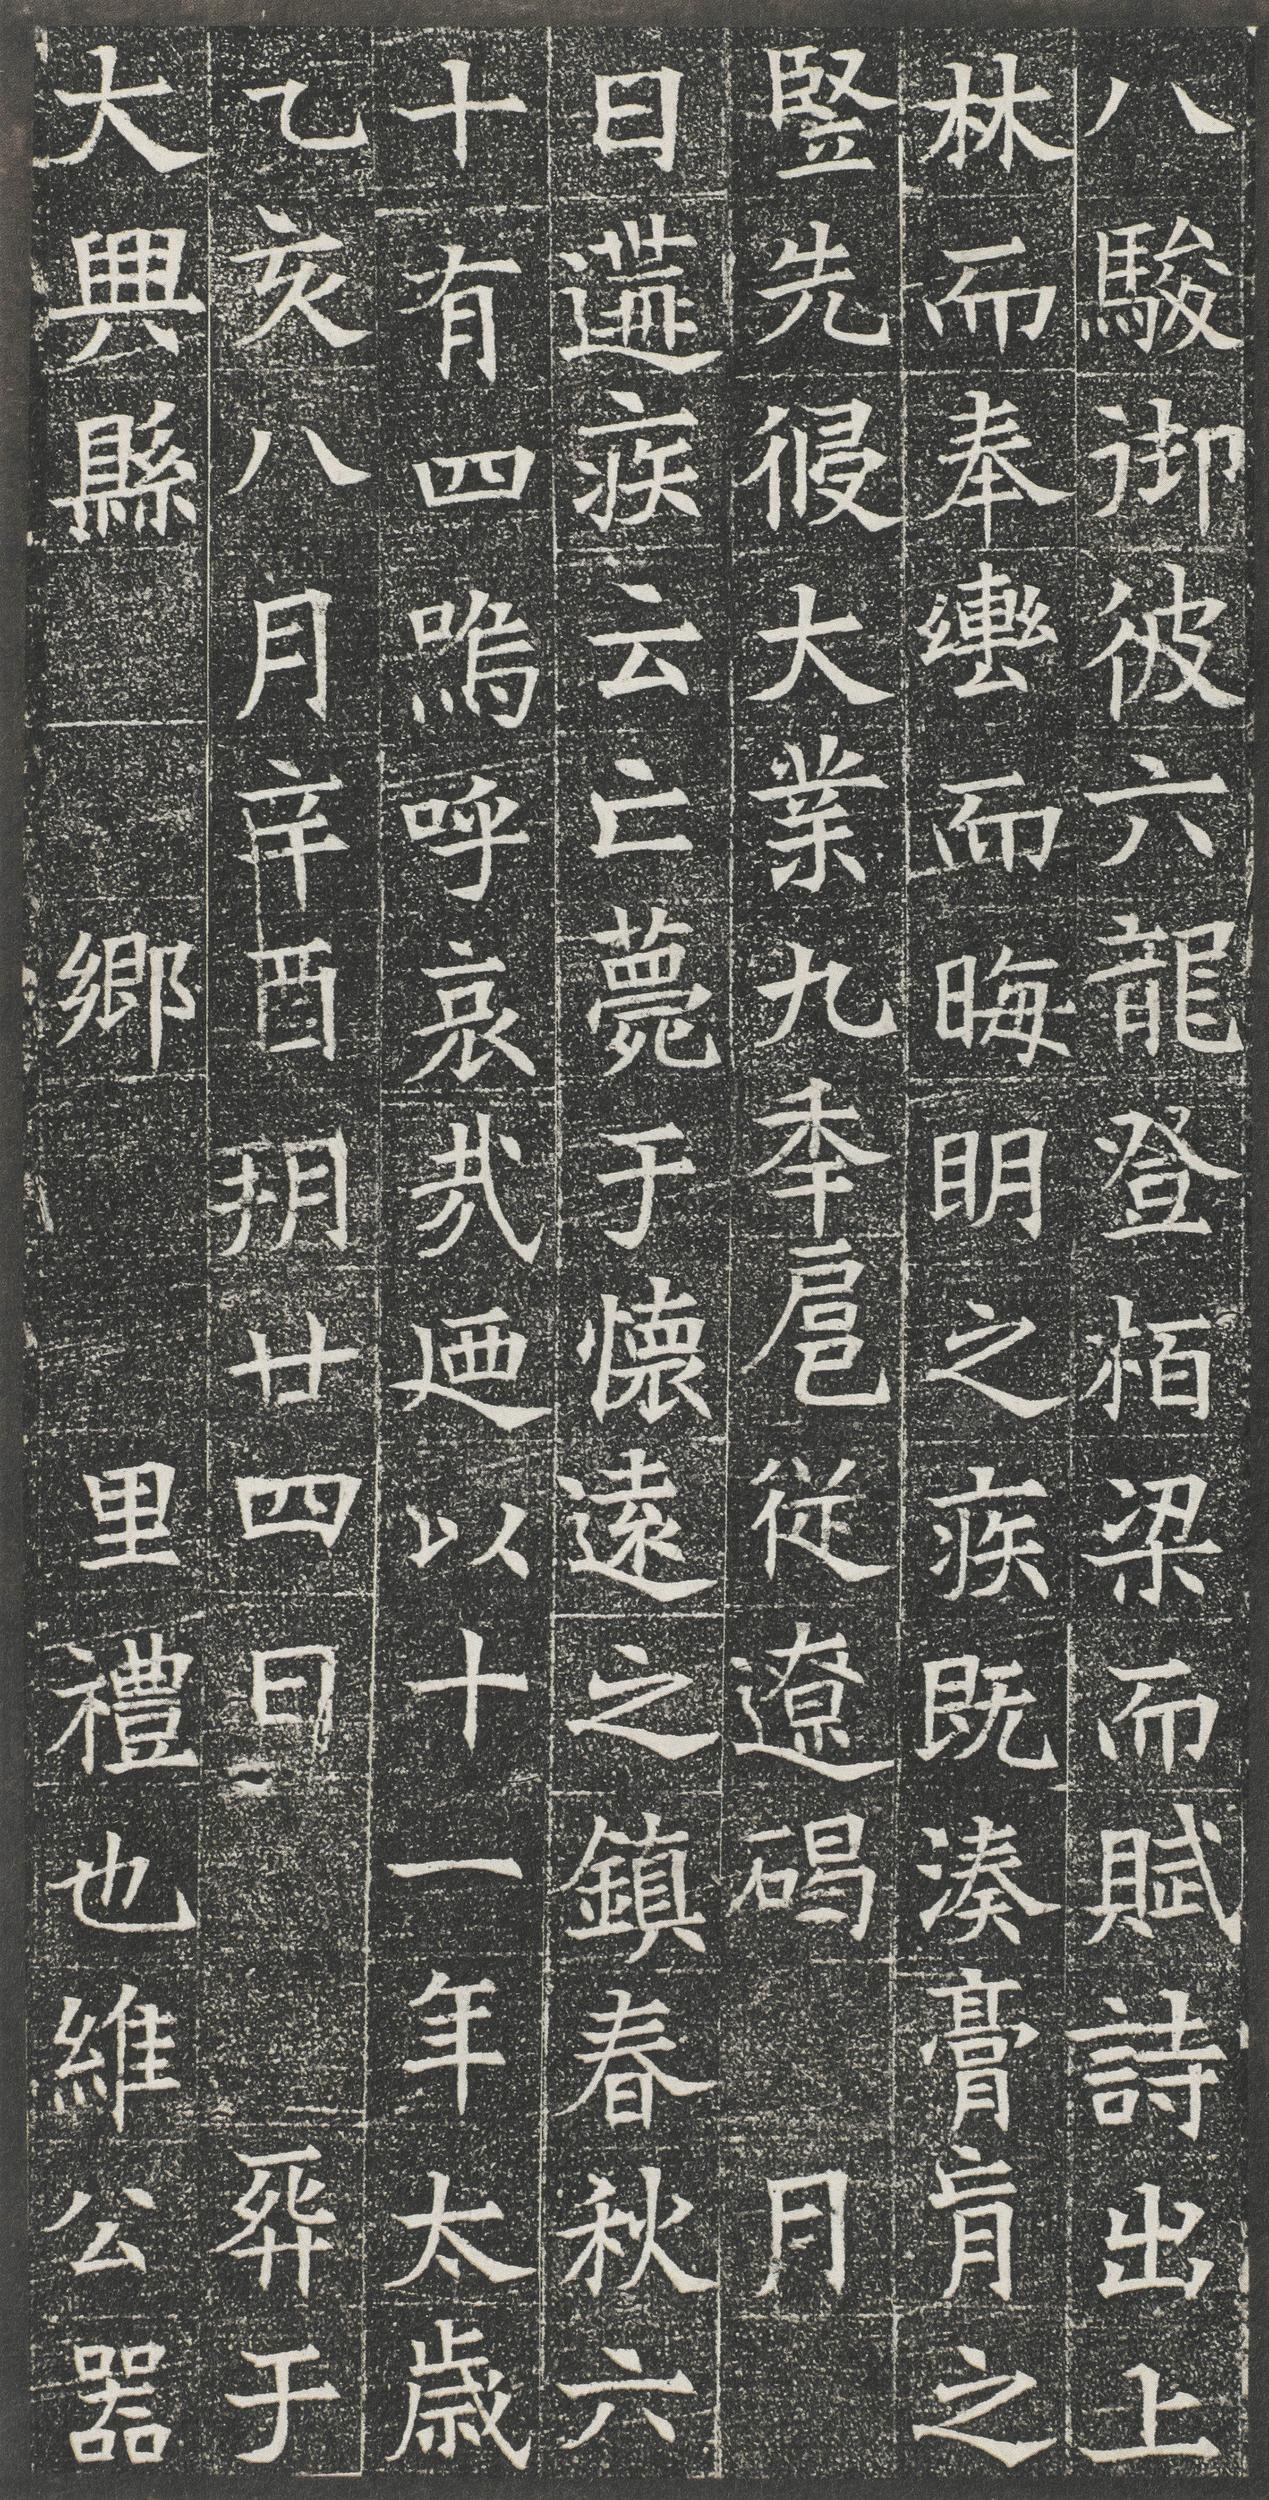 八駿御彼六龍登栢梁而賦詩出上
林而奉轡而晦明之疾既湊膏肓之
豎先侵大業九季扈從遼碣月
日遘疾云亡薨于懷遠之鎮春秋六
十有四嗚呼哀哉廼以十一年太歲
乙亥八月辛酉朔廿四日葬于
大興縣鄉里禮也維公器